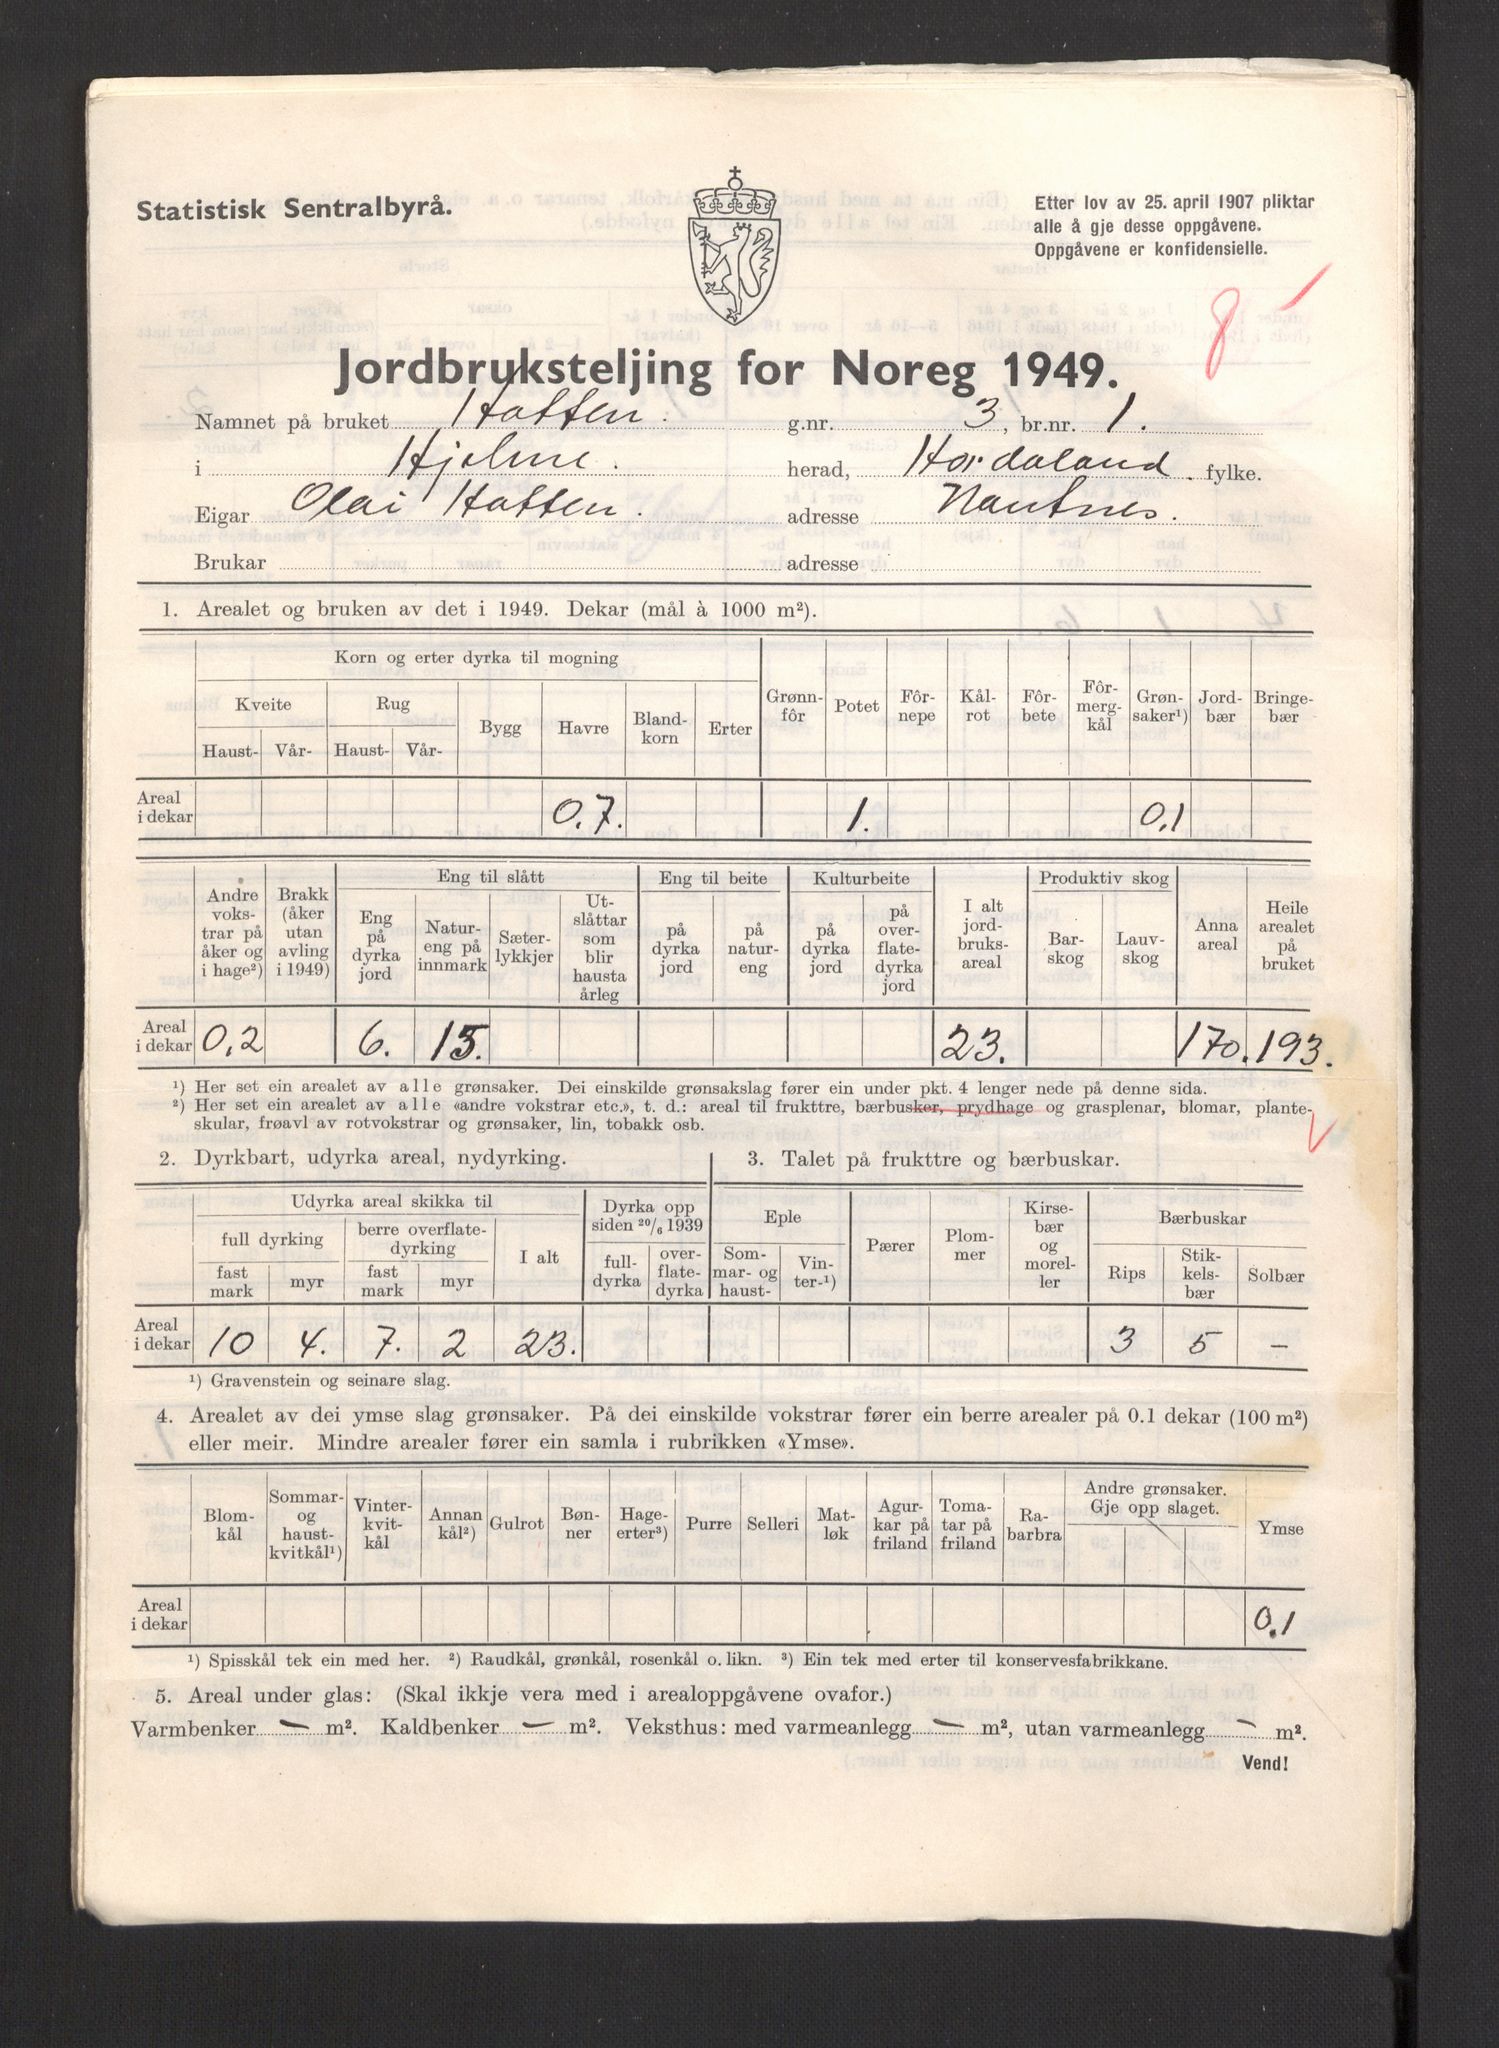 Statistisk Sentralbyrå.
Etter lov av 25. april 1907 pliktar
alle å gje desse oppgåvene.
Oppgåvene er konfidensielle.
8
Jordbruksteljing for Noreg 1949.
Namnet på bruket Hatten. g.nr. 3, br.nr. 1.
i Hjelme. herad, Hordaland. fylke.
Eigar Olai Hatten. adresse Nautnes.
Brukar adresse
1. Arealet og bruken av det i 1949. Dekar (mål à 1000 m²).
Korn og erter dyrka til mogning
Kveite Rug Bygg Havre Bland-korn Erter Grønn-fôr Potet Fôr-nepe Kål-rot Fôr-bete Fôr-mergkål Grøn-saker¹) Jord-bær Bringe-bær
Haust- Vår- Haust- Vår-
Areal i dekar 0.7. 1. 0.1
Eng til slått Eng til beite Kulturbeite Produktiv skog
Andre vokstrar på åker og i hage²) Brakk (åker utan avling i 1949) Eng på dyrka jord Natureng på innmark Sæterlykkjer Utslåttar som blir hausta årleg på dyrka jord på natureng på dyrka jord på overflatedyrka jord I alt jordbruksareal Barskog Lauvskog Anna areal Heile arealet på bruket
Areal i dekar 0.2 6. 15. 23. 170. 193.
¹) Her set ein arealet av alle grønsaker. Dei einskilde grønsakslag fører ein under pkt. 4 lenger nede på denne sida.
²) Her set ein arealet av alle «andre vokstrar etc.», t. d.: areal til frukttre, bærbusker, prydhage og grasplenar, blomar, plante-
skular, frøavl av rotvokstrar og grønsaker, lin, tobakk osb.
2. Dyrkbart, udyrka areal, nydyrking.
Udyrka areal skikka til Dyrka opp siden 20/6 1939
full dyrking berre overflatedyrking I alt fulldyrka overflatedyrka
fast mark myr fast mark myr
Areal i dekar 10 4. 7. 2 23.
3. Talet på frukttre og bærbuskar.
Eple Pærer Plommer Kirsebær og moreller Bærbuskar
Sommar- og haust- Vinter-¹) Rips Stikkelsbær Solbær
3 5 –
¹) Gravenstein og seinare slag.
4. Arealet av dei ymse slag grønsaker. På dei einskilde vokstrar fører ein berre arealer på 0.1 dekar (100 m²)
eller meir. Mindre arealer fører ein samla i rubrikken «Ymse».
Blomkål Sommar- og haustkvitkål¹) Vinterkvitkål Annan kål²) Gulrot Bønner Hageerter³) Purre Selleri Matløk Agurkar på friland Tomatar på friland Rabarbra Andre grønsaker. Gje opp slaget. Ymse
Areal i dekar 0.1
¹) Spisskål tek ein med her. ²) Raudkål, grønkål, rosenkål o. likn. ³) Ein tek med erter til konservesfabrikkane.
5. Areal under glas: (Skal ikkje vera med i arealoppgåvene ovafor.)
Varmbenker – m². Kaldbenker – m². Veksthus: med varmeanlegg – m², utan varmeanlegg – m².
Vend!